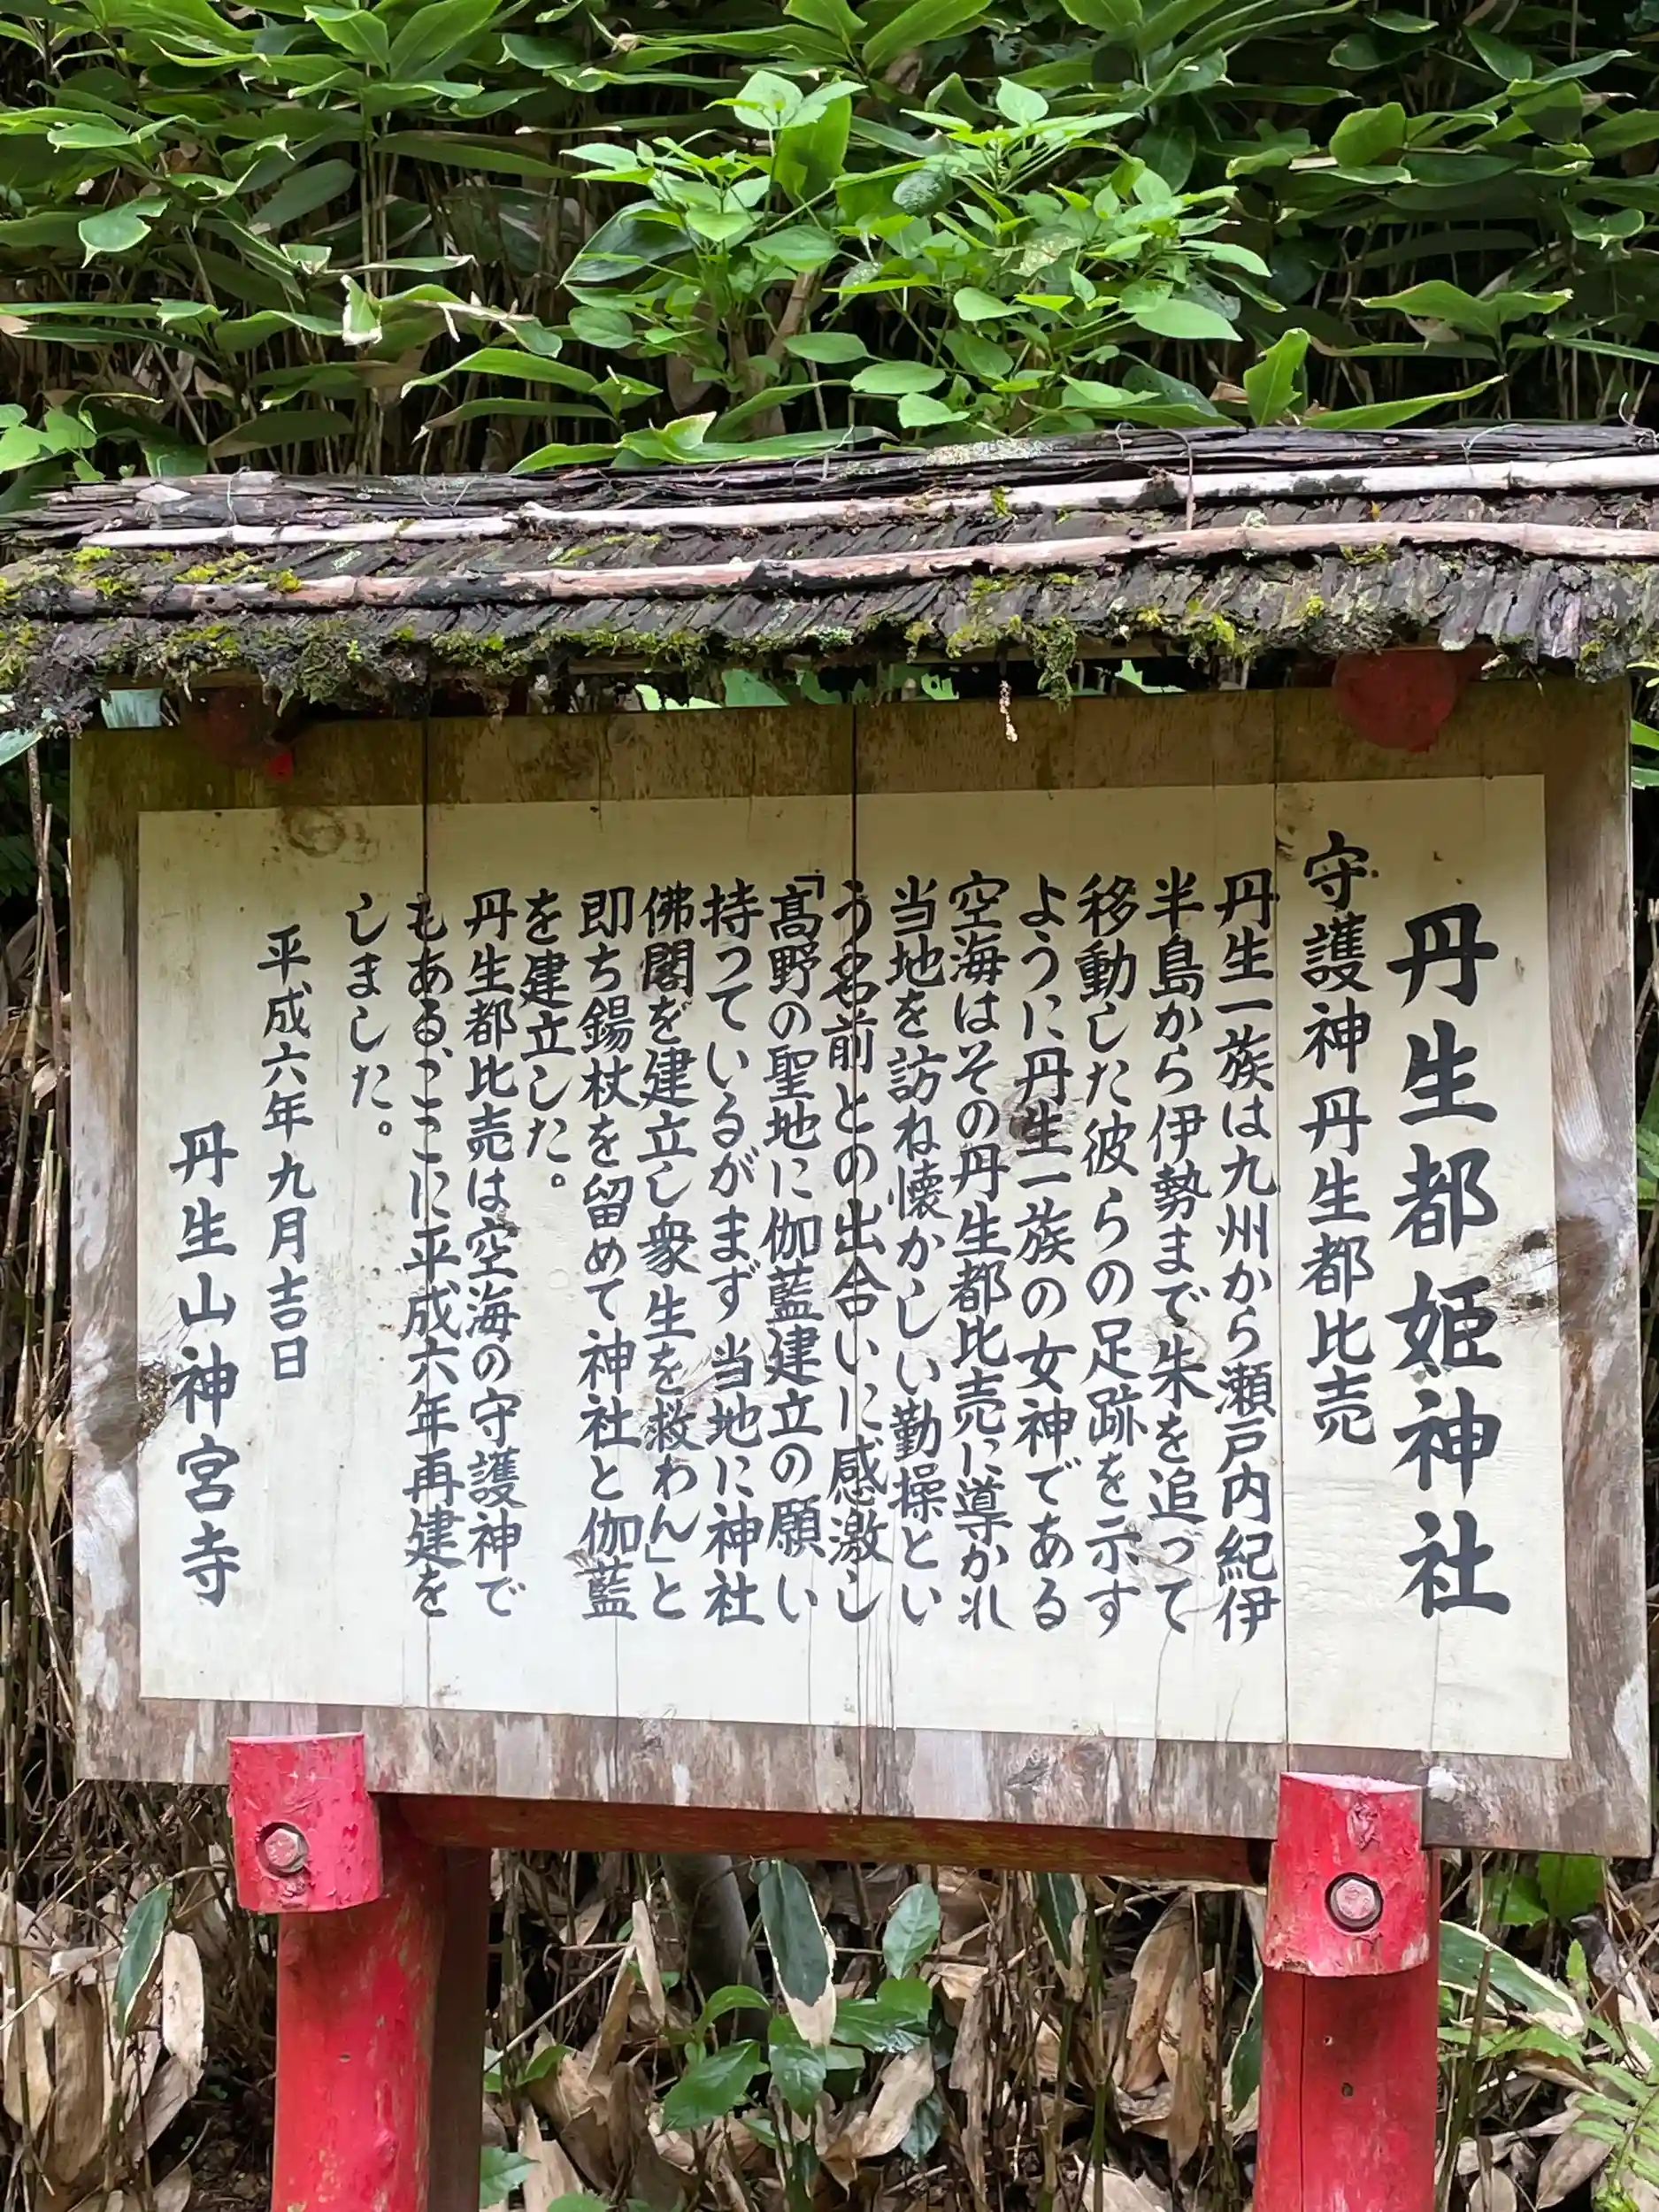 丹生都姫神社
守護神 丹生都比売
丹生一族は九州から瀬戸内紀伊
半島から伊勢まで朱を追って
移動した彼らの足跡を示す
ように丹生一族の女神である
空海はその丹生都比売に導かれ
当地を訪ね懐かしい勤操とい
う名前との出合いに感激し
「高野の聖地に伽藍建立の願い
持っているがまず当地に神社
佛閣を建立し衆生を救わん」と
即ち錫杖を留めて神社と伽藍
を建立した。
丹生都比売は空海の守護神で
もある、ここに平成六年再建を
しました。
平成六年九月吉日
丹生山神宮寺